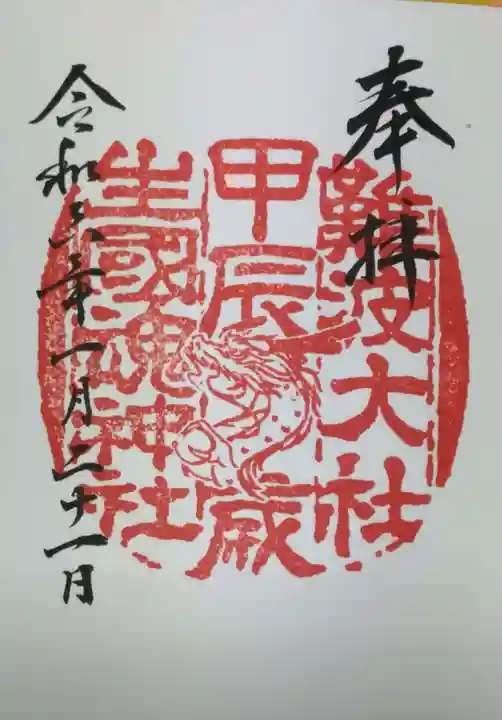 奉拝
難波大社
甲辰歳
生國魂神社
令和六年一月二十一日